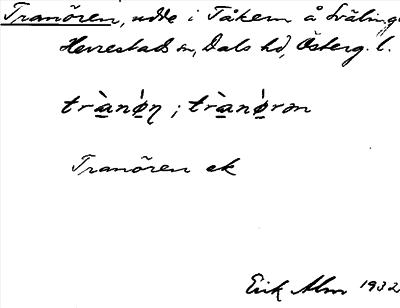 Tranören, udde i Tåkern å Svälinge
Herrestads sn, Dals hd, Österg. l.
trànǿn ; trànǿrən
Tranören ek
Erik Alm 1932